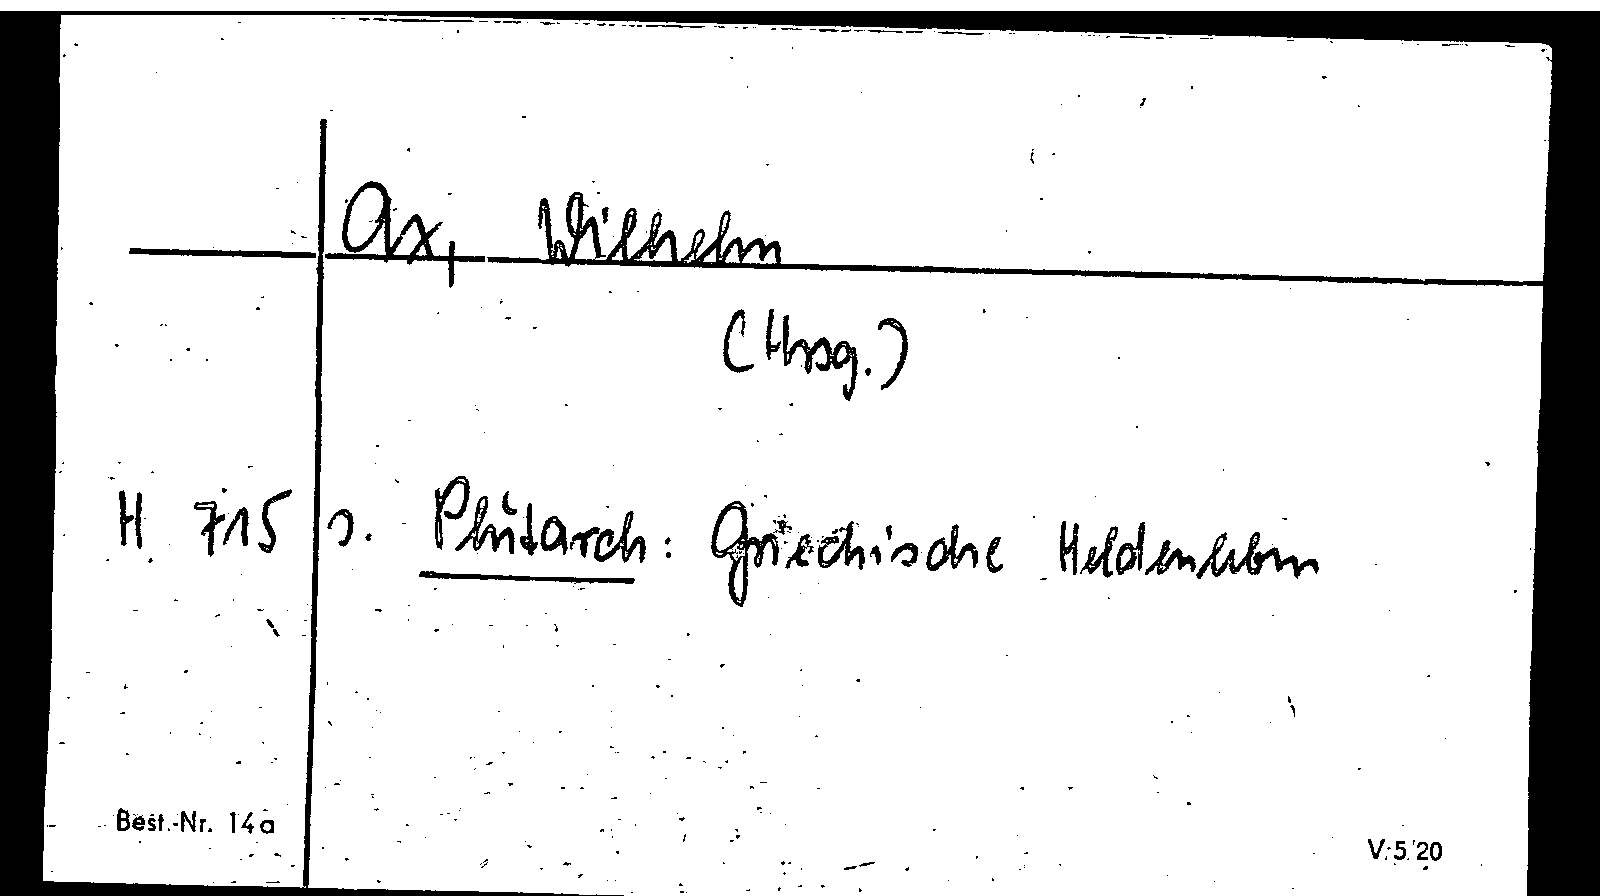 Ax, Wilhelm
(Hrsg.)
H 715 s. Plutarch: Griechische Heldenleben
Best.-Nr. 14a
V.5.20